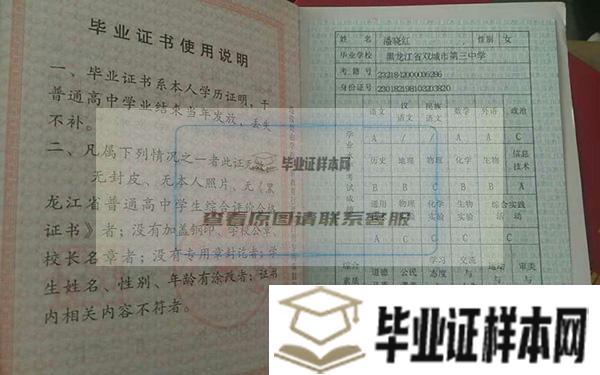 毕业证书使用说明
一、毕业证书系本人学历证明，于
普通高中学业结束当年发放，丢失
不补。
二、凡属下列情况之一者此证无效：
无封皮、无本人照片、无《黑
龙江省普通高中学生综合评价合格
证书》者；没有加盖钢印、学校公章、
校长名章者；没有专用章封讫者；学
生姓名、性别、年龄有涂改者；证书
内相关内容不符者。
姓名 潘晓红 性别 女
毕业学校 黑龙江省双城市第三中学
考籍号
身份证号
语文 汉语文 民族语文 数学 外语 政治
A / / A A C
历史 地理 物理 化学 生物 信息技术
B C B B B A
通用 物理 化学 生物 综合实践
实验 实验 活动
A C C C
综合
素质
道德 公民 学习态度与 交流与 运动与 审美与
毕业证样本网
查看原图请联系客服
毕业证样本网